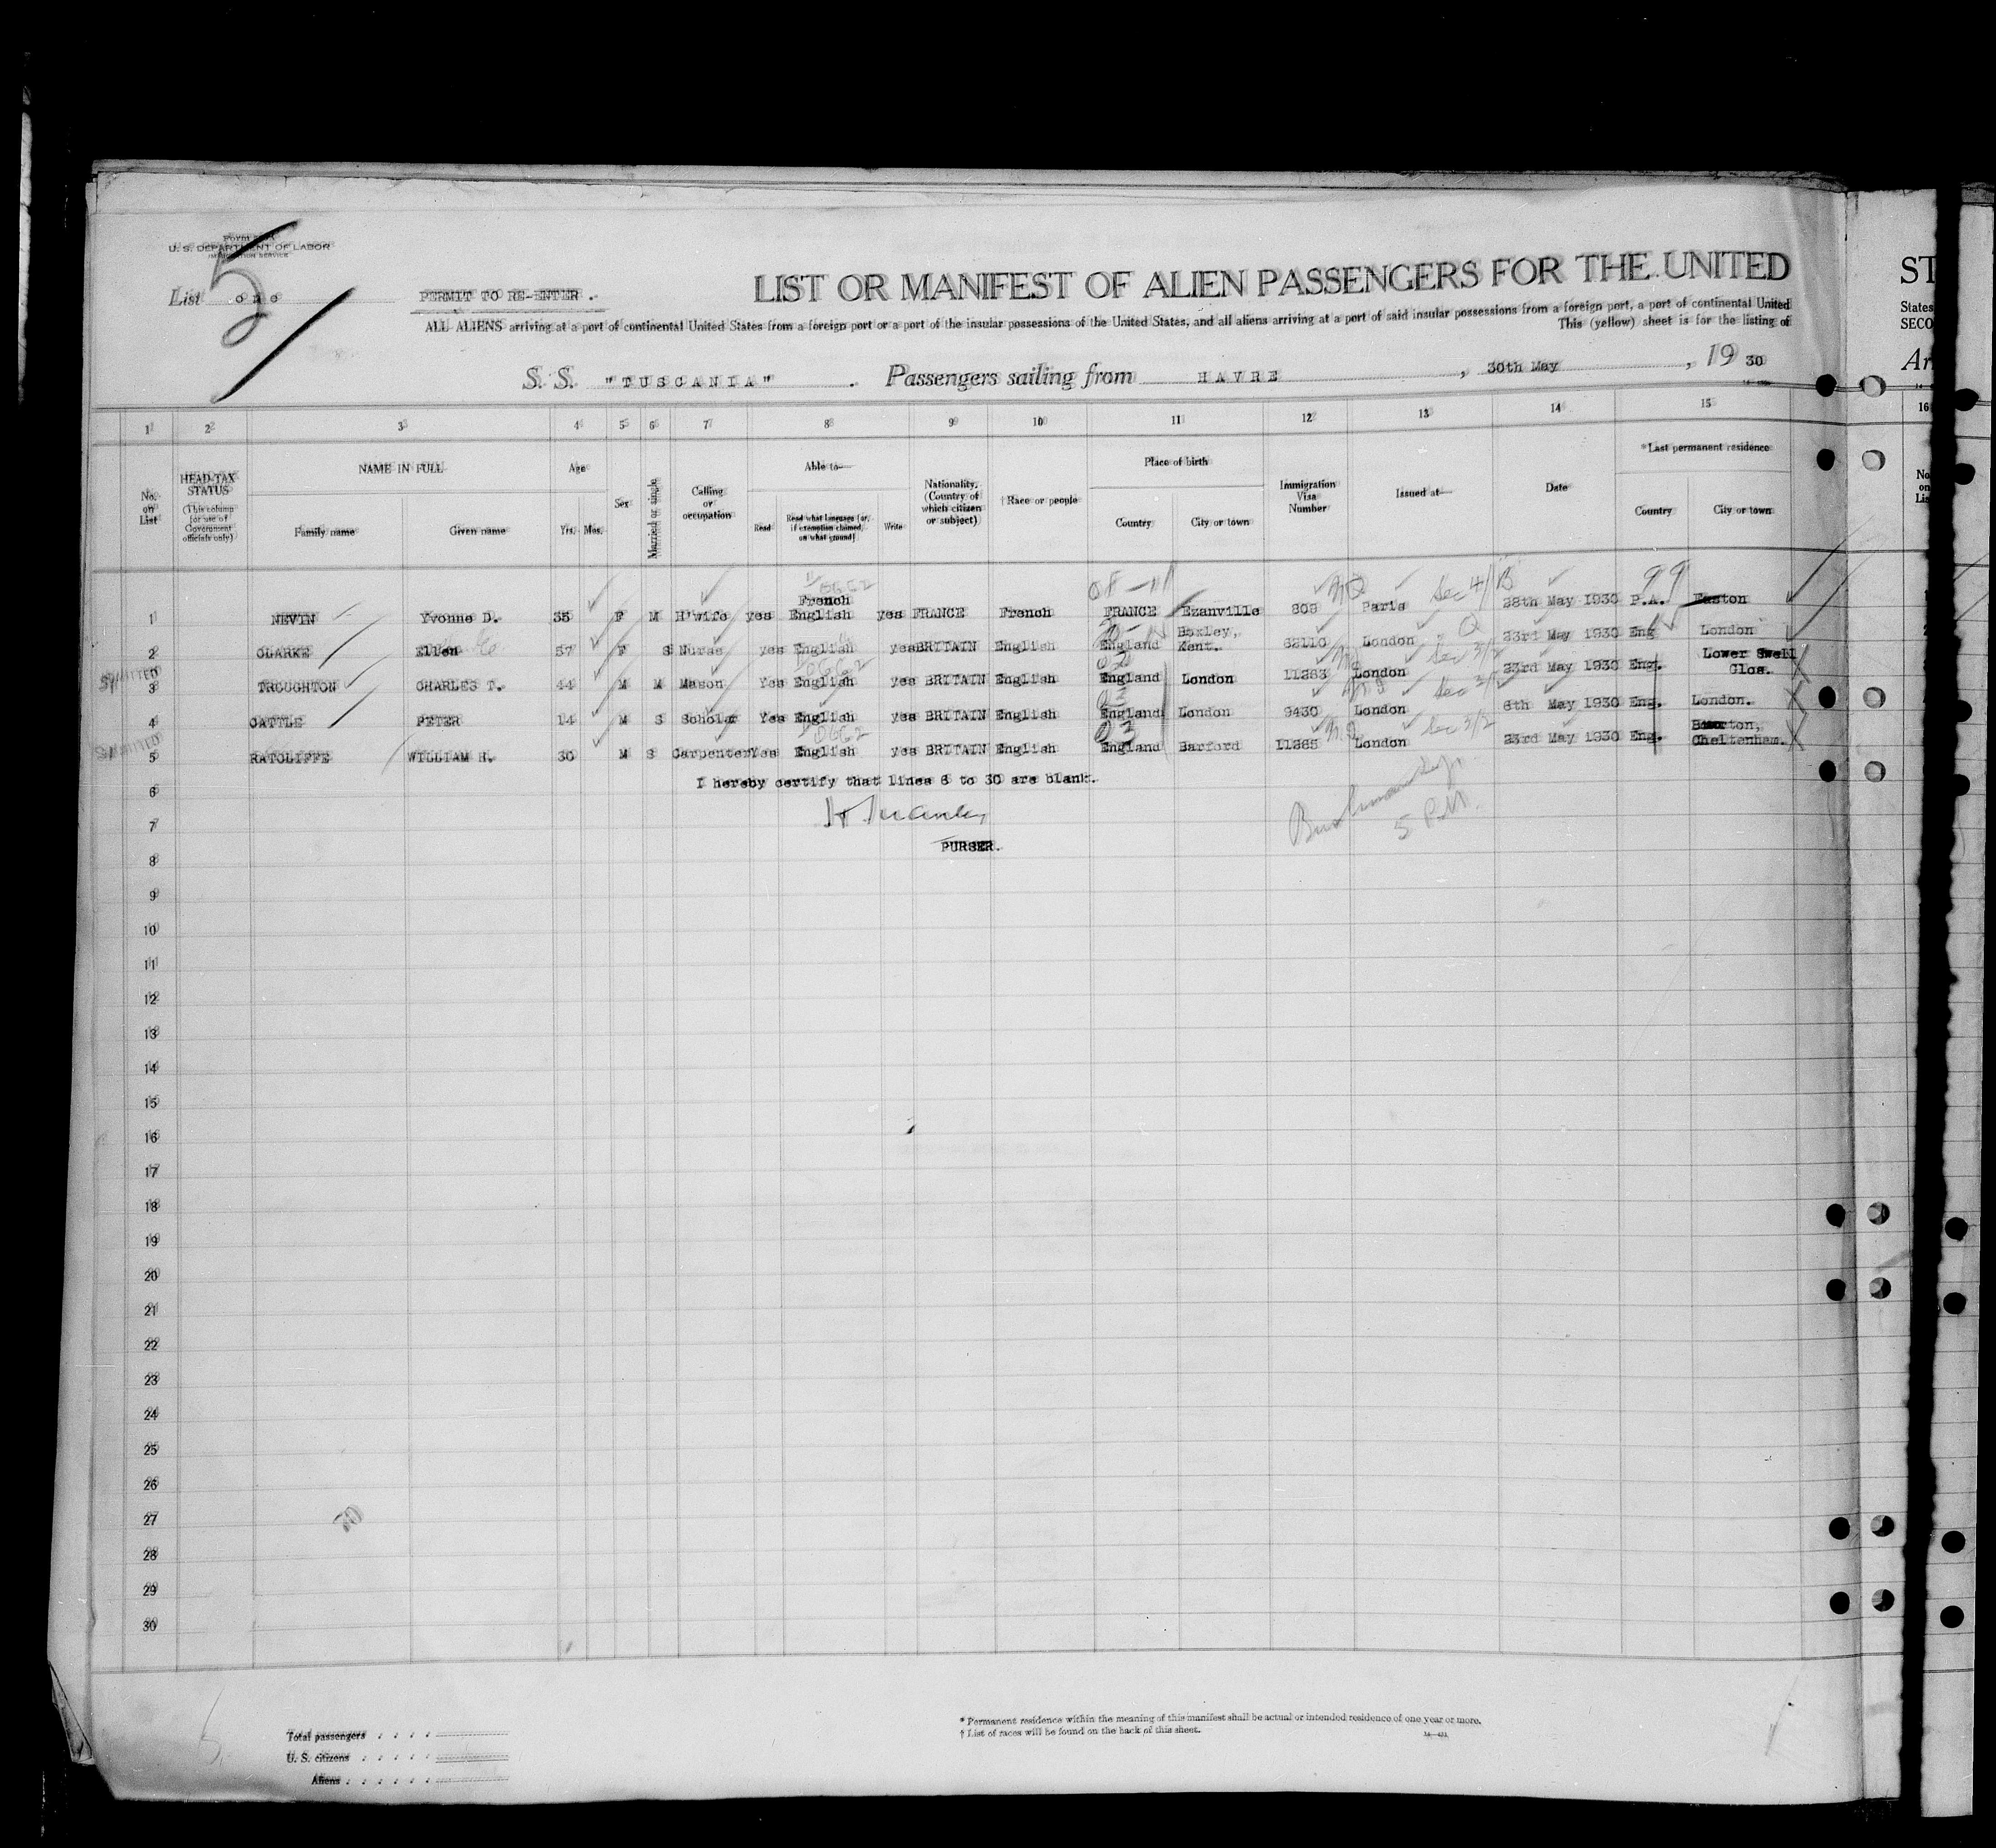 U. S. DEPARTMENT OF LABOR
IMMIGRATION SERVICE
5
List one
PERMIT TO RE-ENTER .
LIST OR MANIFEST OF ALIEN PASSENGERS FOR THE UNITED
ALL ALIENS arriving at a port of continental United States from a foreign port or a port of the insular possessions of the United States, and all aliens arriving at a port of said insular possessions from a foreign port, a port of continental United
This (yellow) sheet is for the listing of
S. S. "TUSCANIA" . Passengers sailing from HAVRE , 30th May , 19 30
ST
States
SECO
Ar
1 2 3 4 5 6 7 8 9 10 11 12 13 14 15 16
No. on List
HEAD-TAX STATUS (This column for use of Government officials only)
NAME IN FULL
Family name Given name
Age
Yrs. Mos.
Sex
Married or single
Calling or occupation
Able to—
Read Read what language [or, if exemption claimed, on what ground] Write
Nationality. (Country of which citizen or subject)
† Race or people
Place of birth
Country City or town
Immigration Visa Number
Issued at—
Date
*Last permanent residence
Country City or town
No. on Lis
1 NEVIN Yvonne D. 35 F M H'wife yes French English yes FRANCE French FRANCE Ezanville 808 Paris 28th May 1930 P.A. Easton
2 CLARKE Ellen 57 F S Nurse yes English yes BRITAIN English England Boxley, Kent. 62110 London 23rd May 1930 Eng London
3 TROUGHTON CHARLES T. 44 M M Mason Yes English yes BRITAIN English England London 11283 London 23rd May 1930 Eng. Lower Swell Glos.
4 CATTLE PETER 14 M S Scholar Yes English yes BRITAIN English England London 9430 London 6th May 1930 Eng. London.
5 RATCLIFFE WILLIAM H. 30 M S Carpenter Yes English yes BRITAIN English England Barford 11285 London 23rd May 1930 Eng. Cheltenham.
6 I hereby certify that lines 6 to 30 are blank.
7
PURSER.
8
9
10
11
12
13
14
15
16
17
18
19
20
21
22
23
24
25
26
27
28
29
30
Total passengers . . . .
U. S. citizens . . . . .
Aliens . . . . . .
* Permanent residence within the meaning of this manifest shall be actual or intended residence of one year or more.
† List of races will be found on the back of this sheet.